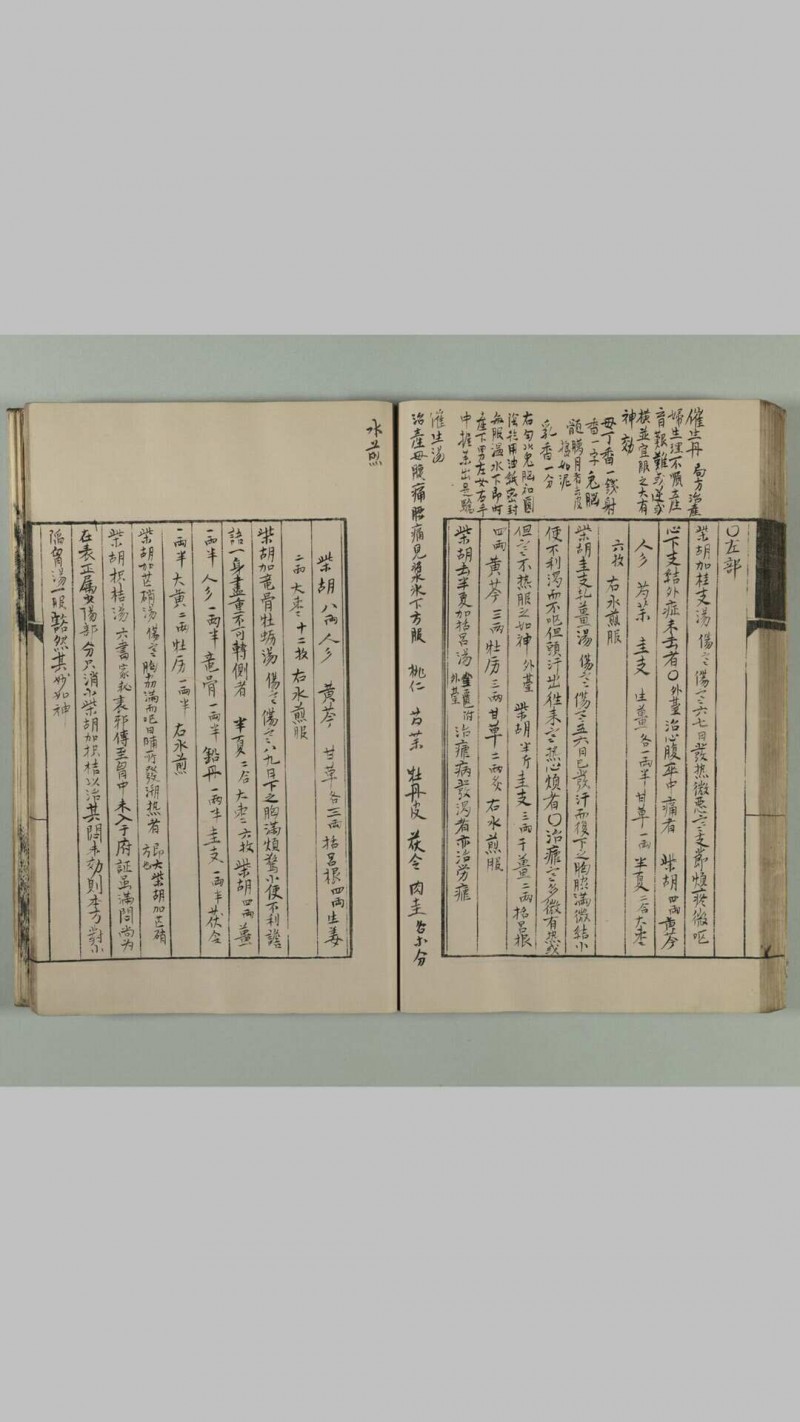 催生丹 局方治產
婦生理不順產
育艱難或逆或
橫並宜服之大有
神効
母丁香一錢射
香一字兔腦
髓臘月者去皮
膜如泥
乳香一分
右勻以兔腦和圓
陰乾用油紙密封
每服溫水下即時
產下男左女右手
中握藥出是驗
催生湯
治產母腹痛腰痛見漿水下方服 桃仁 芍藥 牡丹皮 茯令 肉圭 各等分
水煎
〇左部
柴胡加桂支湯 傷寒 傷寒六七日發热微惡寒支節煩疼微呕
心下支結外症未去者〇外䑓治心腹卒中痛者 柴胡四兩黄芩
人參 芍藥 圭支 生薑各一兩半 甘草一兩 半夏二合大枣
六枚 右水煎服
柴胡圭支乹薑湯 傷寒 傷寒五六日已發汗而復下之胸脇滿微結小
便不利渴而不呕但頭汗出往来寒热心煩者〇治瘧寒多微有热或
但寒不热服之如神 外䑓 柴胡半斤圭支三兩干薑二兩括呂根
四兩黄芩三兩牡厉三兩甘草二兩炙 右水煎服
柴胡去半夏加括呂湯 金匱附外䑓 治瘧病發渴者亦治労瘧
柴胡八兩 人參 黄芩 甘草各三兩 括呂根四兩生姜
二兩 大枣十二枚 右水煎服
柴胡加竜骨牡蛎湯 傷寒 傷寒八九日下之胸滿煩驚小便不利譫
語一身盡重不可轉側者 半夏二合 大枣六枚 柴胡四兩 薑
一兩半 人參一兩半 竜骨一兩半 鉛丹一兩半 圭支一兩半茯令
一兩半 大黄二兩牡厉一兩半 右水煎
柴胡加芒硝湯 傷寒 胸脇滿而呕日晡所發潮热者 即大柴胡加芒硝方也
柴胡枳桔湯 六書 家秘表邪傳至胷中未入于府証虽滿悶尚为
在表正属少陽部分只消小柴胡加枳桔以治其悶未効則本方對小
陷胷湯一服豁然其妙如神